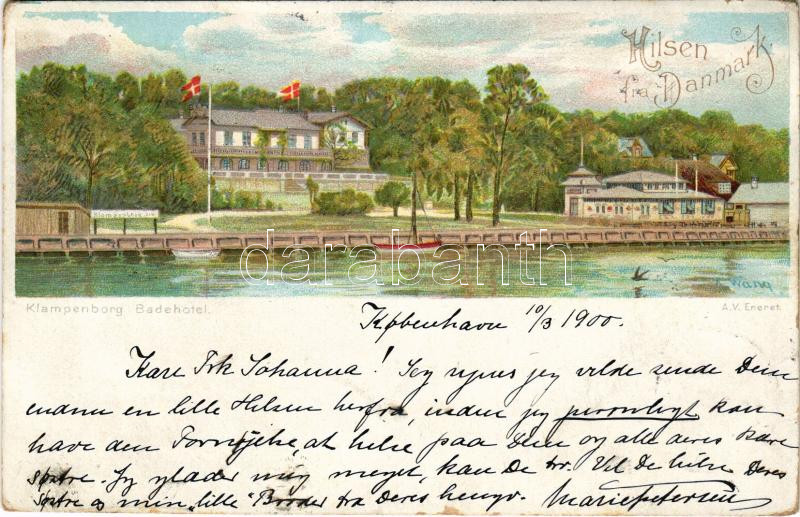 Hilsen
fra Danmark.
Klampenborg
darabanth
Wang
Klampenborg Badehotel.
A.V. Eneret.
København 10/3 1900.
Kære Frk Johanna! Jeg synes jeg vilde sende Dem
endnu en lille Hilsen herfra, inden jeg personligt kan
have den Fornøjelse, at hilse paa Dem og alle deres kære
søstre. Jeg glæder mig meget, kan De tro. Vil De hilse Deres
søstre og min "lille" Broder fra Deres hengv. Marie Petersen